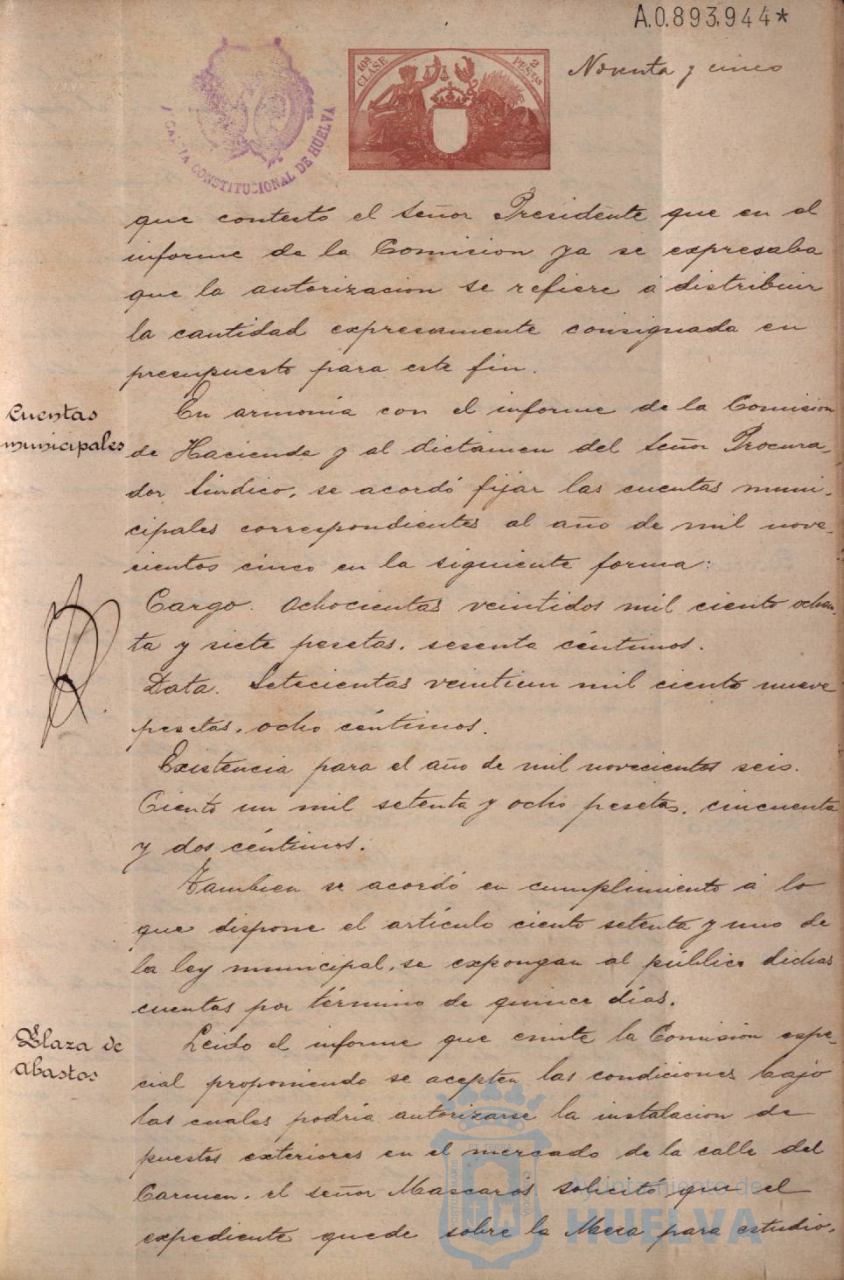 A.0.893,944*
10ª CLASE
2 PESETAS
Noventa y cinco
CONSTITUCIONAL DE HUELVA
que contestó el Señor Presidente que en el
informe de la Comision ya se expresaba
que la autorizacion se refiere á distribuir
la cantidad expresamente consignada en
presupuesto para este fin.
Cuentas
municipales
En armonía con el informe de la Comision
de Hacienda y al dictamen del Señor Procura-
dor Síndico, se acordó fijar las cuentas muni-
cipales correspondientes al año de mil nove-
cientos cinco en la siguiente forma:
Cargo. Ochocientas veintidos mil ciento ochen-
ta y siete pesetas, sesenta céntimos.
Data. Setecientas veintiun mil ciento nueve
pesetas, ocho céntimos.
Existencia para el año de mil novecientos seis.
Ciento un mil setenta y ocho pesetas, cincuenta
y dos céntimos.
Tambien se acordó en cumplimiento á lo
que dispone el artículo ciento setenta y uno de
la ley municipal, se expongan al público dichas
cuentas por término de quince días.
Plaza de
Abastos
Leido el informe que emite la Comision espe-
cial proponiendo se acepten las condiciones bajo
las cuales podría autorizarse la instalacion de
puestos exteriores en el mercado de la calle del
Carmen, el señor Mascarós solicitó que el
expediente quede sobre la Mesa para estudio.
Ayuntamiento de
HUELVA